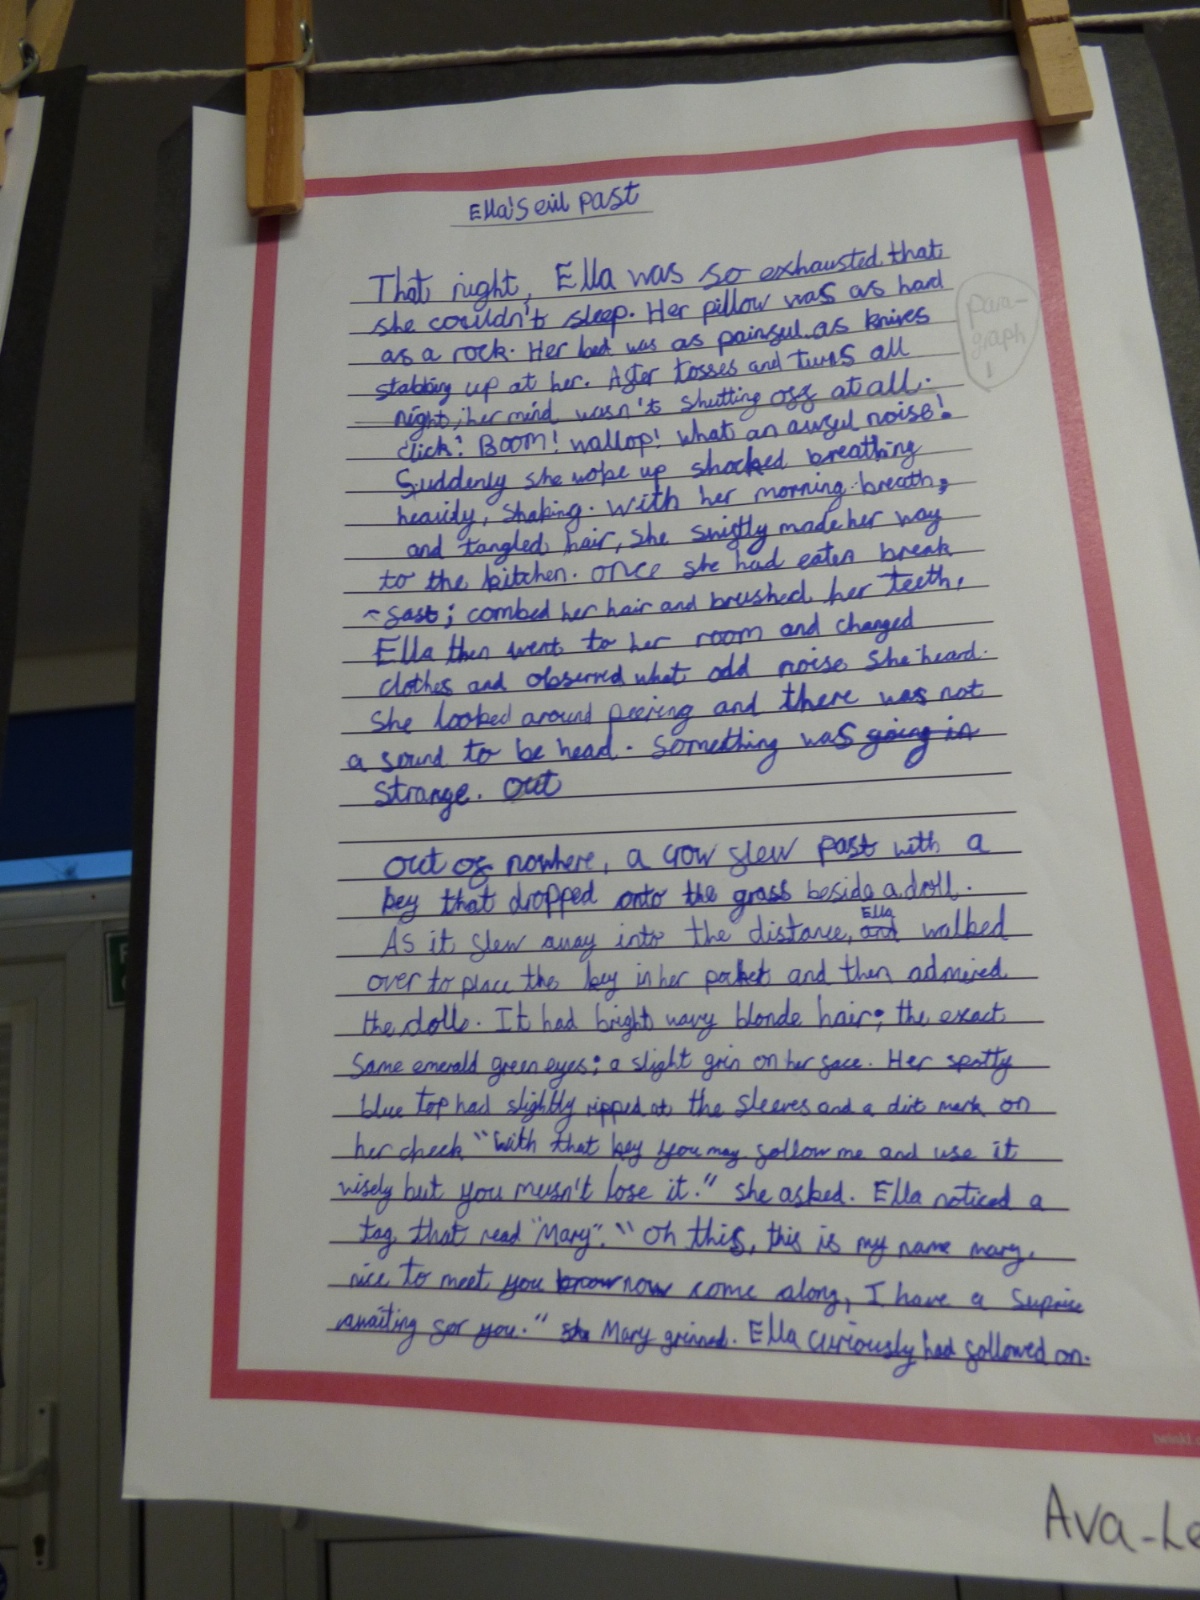 Ella's evil past
That night, Ella was so exhausted that
she couldn't sleep. Her pillow was as hard
as a rock. Her bed was as painful as knives
stabbing up at her. After tosses and turns all
night; her mind wasn't shutting off at all.
click! BOOM! wallop! what an awful noise!
Suddenly she woke up shocked breathing
heavily, shaking. With her morning breath,
and tangled hair, she swiftly made her way
to the kitchen. once she had eaten break
-fast; combed her hair and brushed her teeth,
Ella then went to her room and changed
clothes and observed what odd noise she heard.
She looked around peering and there was not
a sound to be head. Something was going in
strange. Out
Out of nowhere, a crow flew past with a
key that dropped onto the grass beside a doll.
As it flew away into the distance, and Ella walked
over to place the key in her pocket and then admired
the doll. It had bright wavy blonde hair; the exact
same emerald green eyes; a slight grin on her face. Her spotty
blue top had slightly ripped at the sleeves and a dirt mark on
her cheek "With that key you may follow me and use it
wisely but you musn't lose it." she asked. Ella noticed a
tag that read "Mary". "Oh this, this is my name mary,
nice to meet you now come along, I have a suprice
awaiting for you." she Mary grinned. Ella curiously had followed on.
para-
graph
Ava-Le